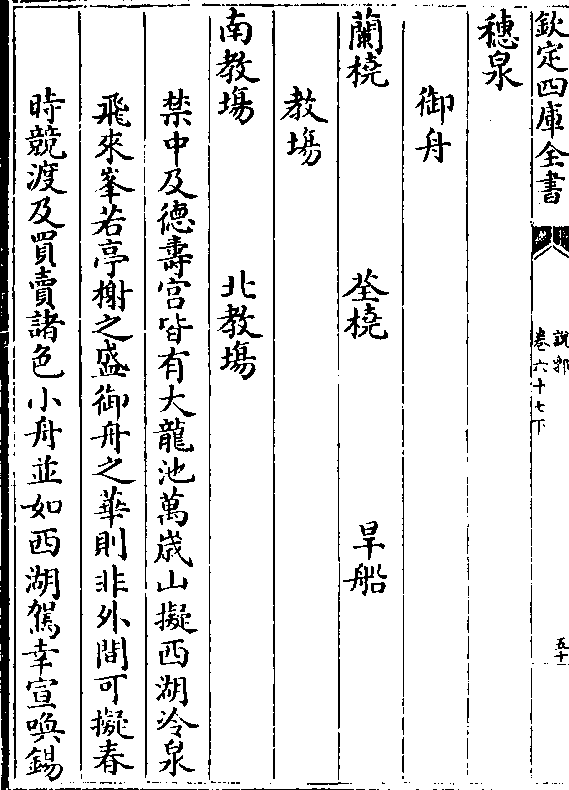 欽定四庫全書
說郛
卷六十七下
五十
穗泉
御舟
蘭橈 荃橈 旱船
教塲
南教塲 北教塲
禁中及德壽宫皆有大龍池萬歳山擬西湖冷泉
飛來峯若亭榭之盛御舟之華則非外間可擬春
時競渡及買賣諸色小舟並如西湖駕幸宣喚錫